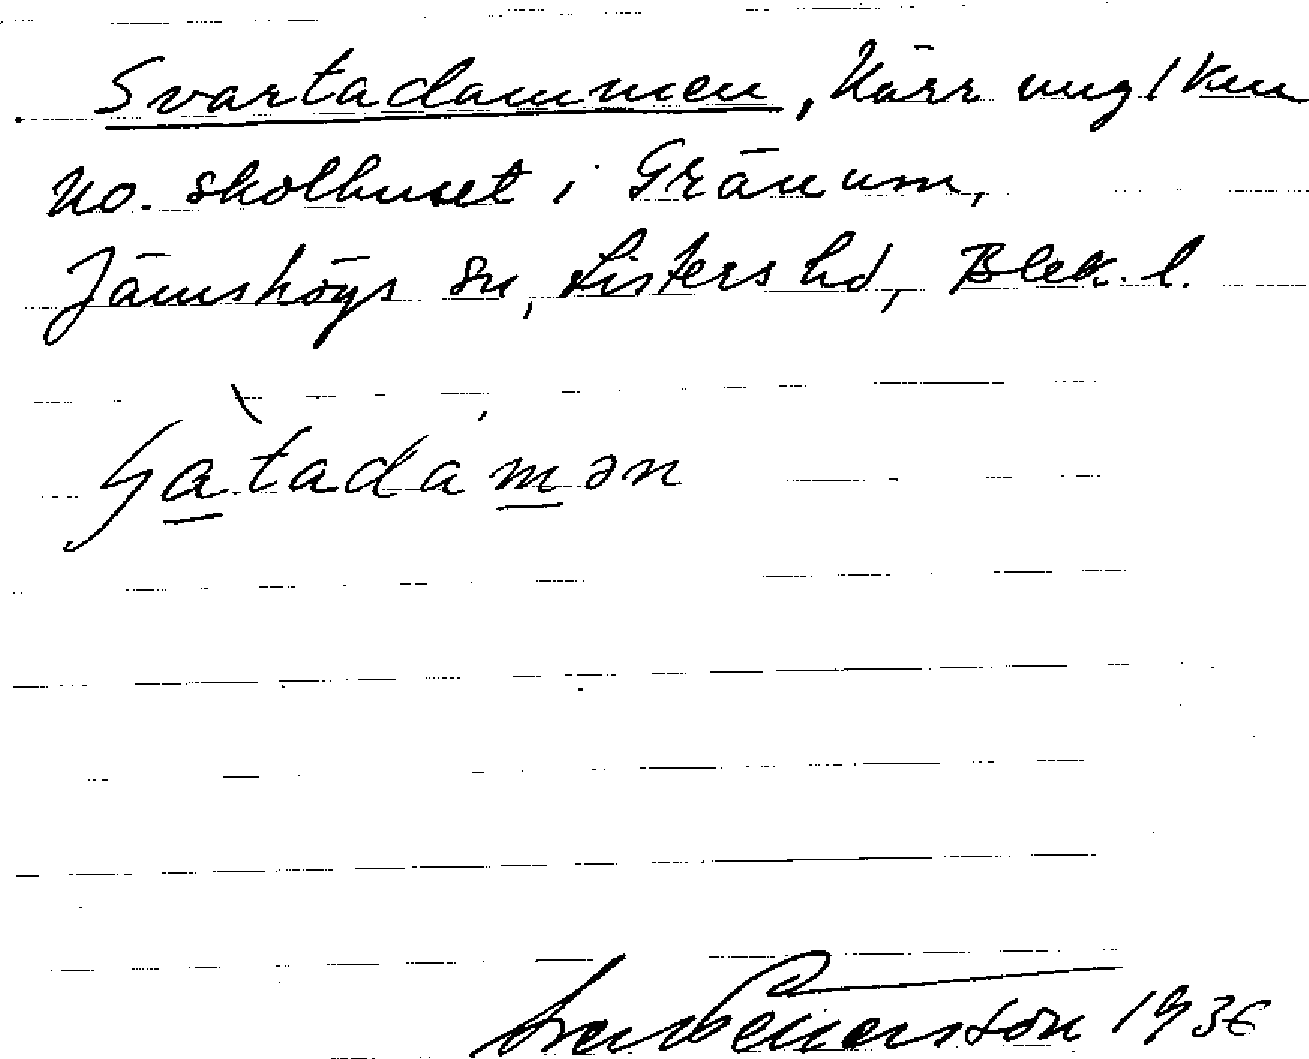 Svartadammen, Kärr ung 1 km
no. skolhuset i Gränum,
Jämshögs sn, Listers hd, Blek. l.
Sven Benson 1936